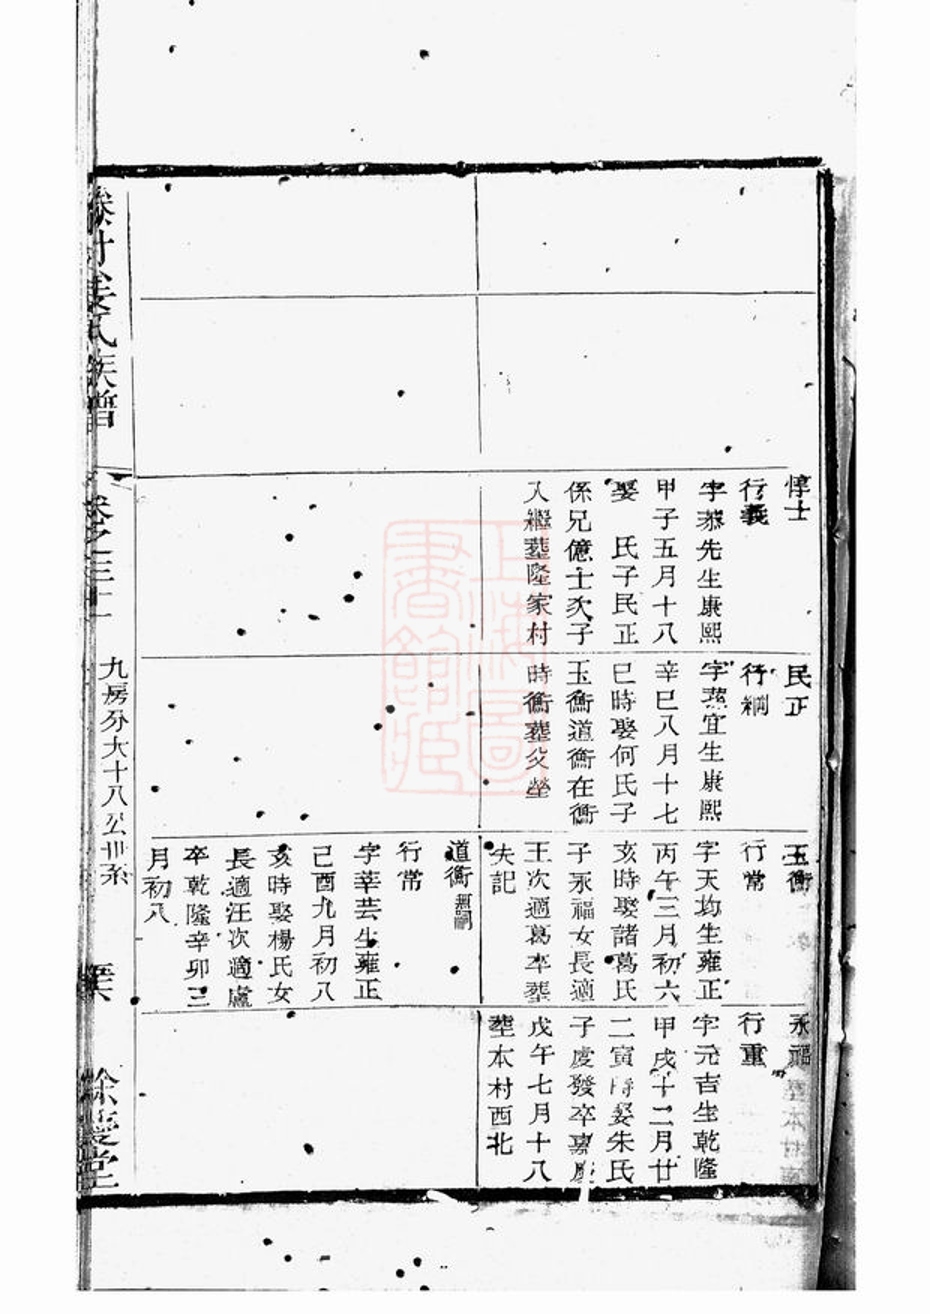 惇士
行義
字恭先生康熙
甲子五月十八
娶 氏子民正
係兄億士次子
入繼葬隆家村
民正
行綱
字宜生康熙
辛巳八月十七
巳時娶何氏子
玉衡道衡在衡
時衡葬父塋
玉衡
行常
字天均生雍正
丙午三月初六
亥時娶諸葛氏
子永福女長適
王次適葛卒葬
失記
道衡無嗣
行常
字莘芸生雍正
己酉九月初八
亥時娶楊氏女
長適汪次適盧
卒乾隆辛卯三
月初八
永福
行重
字元吉生乾隆
甲戌十二月廿
二寅時娶朱氏
子慶發卒嘉慶
戊午七月十八
塟本村西北
姜氏族譜
卷之三十
九房分大十八公卅系
餘慶堂
上海圖書館藏